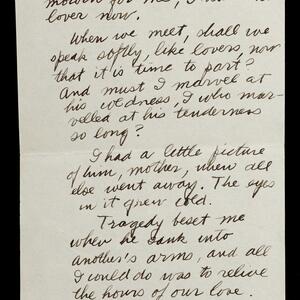 for me, I
lover now.
When we meet, shall we
speak softly, like lovers, now
that it is time to part?
And must I marvel at
his coldness, I who mar-
velled at his tenderness
so long?
I had a little picture
of him, mother, when all
else went away. The eyes
in it grew cold.
Tragedy beset me
when he sank into
another's arms, and all
I could do was to relive
the hours of our love.